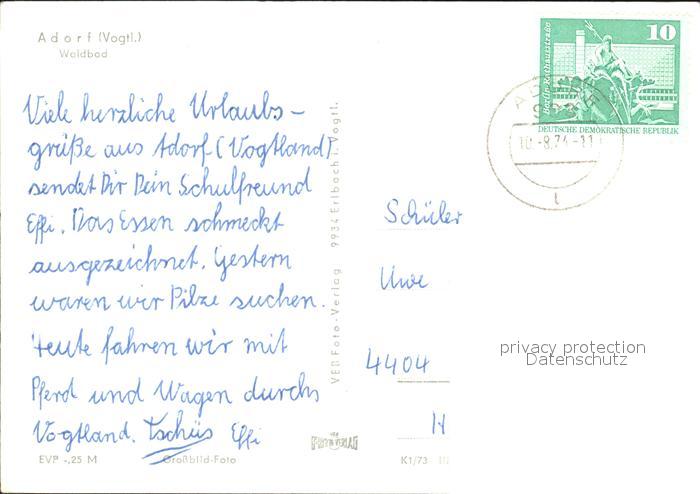 Adorf (Vogtl.)
Waldbad
10
Berlin-Rathausstraße
DEUTSCHE DEMOKRATISCHE REPUBLIK
10.-8.74.-11
Viele herzliche Urlaubs-
grüße aus Adorf (Vogtland)
sendet Dir Dein Schulfreund
Effi. Das Essen schmeckt
ausgezeichnet. Gestern
waren wir Pilze suchen.
Heute fahren wir mit
Pferd und Wagen durchs
Vogtland. Tschüs Effi
VEB Foto-Verlag 9934 Erlbach i. Vogtl.
Schüler
Uwe
4404
H
privacy protection
Datenschutz
EVP -,25 M
Großbild-Foto
K1/73